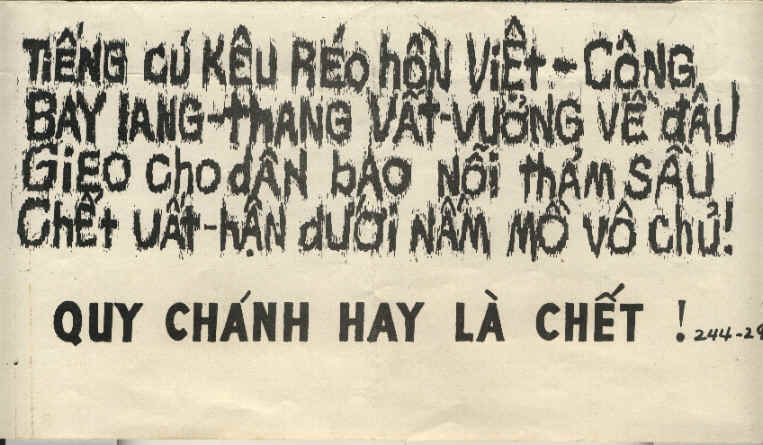 TIẾNG CÚ KÊU RÉO HỒN VIỆT-CÔNG
BAY LANG-THANG VẤT-VƯỞNG VỀ ĐÂU
GIEO CHO DÂN BAO NỖI THẢM SẦU
CHẾT UẤT-HẬN DƯỚI NẤM MỒ VÔ CHỦ!
QUY CHÁNH HAY LÀ CHẾT !